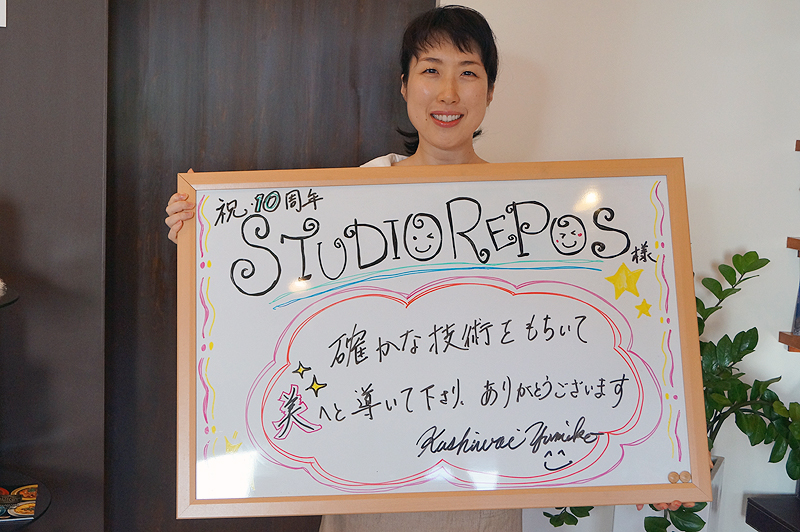 祝・10周年
STUDIO REPOS 様
確かな技術をもちいて
美へと導いて下さり、ありがとうございます
Kashiwai Yumiko